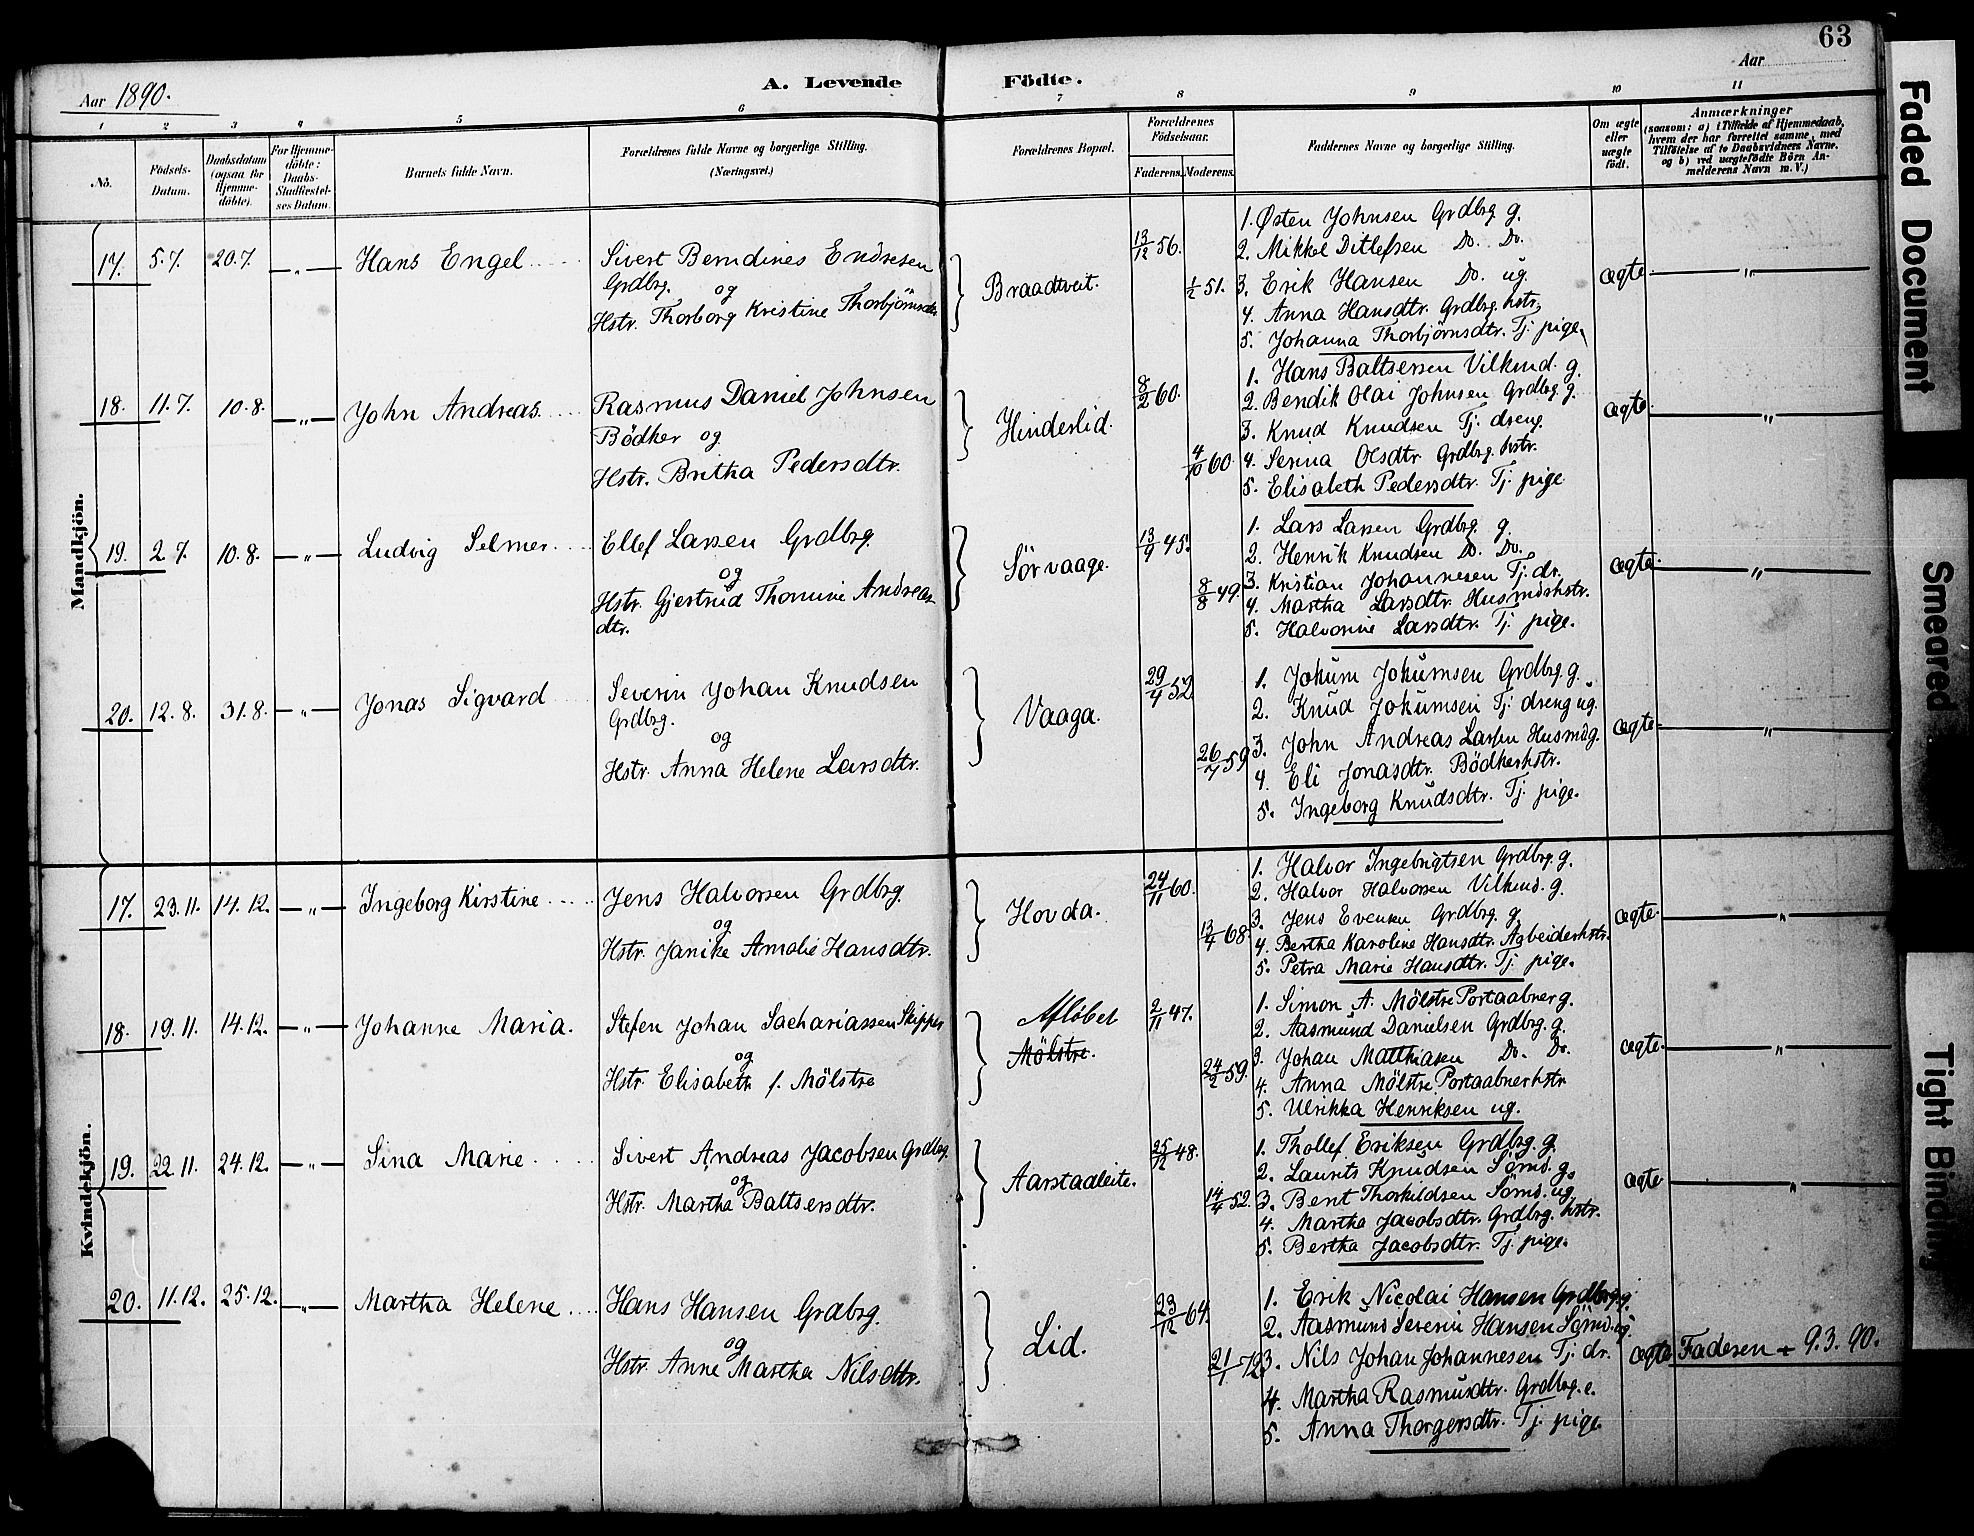 63
Aar 1890.
A. Levende Födte.
Aar
1 2 3 4 5 6 7 8 9 10 11
No.
Födsels-Datum.
Daabsdatum (ogsaa for Hjemme-döbte).
For Hjemme-döbte: Daabs-Stadfæstel-ses Datum.
Barnets fulde Navn.
Forældrenes fulde Navne og borgerlige Stilling.
(Næringsvei.)
Forældrenes Bopæl.
Forældrenes Födselsaar.
Faderens. Moderens.
Faddernes Navne og borgerlige Stilling.
Om ægte eller uægte födt.
Anmærkninger
(saasom: a) i Tilfælde af Hjemmedaab, hvem der har forrettet samme, med Tilföielse af to Daabsvidners Navne, og b) ved uægtefödte Börn An-melderens Navn m. V.)
Mandkjön.
17. 5.7. 20.7. —"— Hans Engel
Sivert Berndines Endresen
Grdbrg. og
Hstr. Thorborg Kristine Thorbjörnsdtr
Braadtveit.
13/12 56.
1/2 51.
1. Østen Johnsen Grdbrg g.
2. Mikkel Ditlefsen Do. Do.
3. Erik Hansen Do. ug.
4. Anna Hansdtr. Grdbrg. hstr.
5. Johanna Thorbjørnsdtr. Tj. pige.
ægte —"—
18. 11.7. 10.8. —"— John Andreas
Rasmus Daniel Johnsen
Bödker og
Hstr. Britha Pedersdtr.
Hinderlid.
8/2 60.
4/10 60
1. Hans Baltsersen Vilkmd. g.
2. Bendik Olai Johnsen Grdbrg. g.
3. Knud Knudsen Tj. dreng.
4. Serina Olsdtr Grdbrg. hstr.
5. Elisabeth Pedersdtr. Tj. pige
ægte —"—
19. 2.7. 10.8. —"— Ludvig Selmer
Ellef Larsen Grdbrg.
og
Hstr. Gjertrud Thomine Andreas-
dtr.
Sörvaage.
13/9 45.
8/8 49
1. Lars Larsen Grdbrg. g.
2. Henrik Knudsen Do. Do.
3. Kristian Johannesen Tj. dr.
4. Martha Larsdtr. Husmdshstr.
5. Halvorine Larsdtr. Tj. pige.
ægte —"—
20. 12.8. 31.8. —"— Jonas Sigvard
Severin Johan Knudsen
Grdbrg.
og
Hstr. Anna Helene Larsdtr.
Vaaga.
29/4 52
26/7 59
1. Jokum Jokumsen Grdbrg. g.
2. Knud Jokumsen Tj. dreng ug.
3. John Andreas Larsen Husmd g.
4. Eli Jonasdtr. Bödkerhstr.
5. Ingeborg Knudsdtr. Tj. pige.
ægte —"—
Kvindekjön.
17. 23.11. 14.12. —"— Ingeborg Kirstine
Jens Halvorsen Grdbrg.
og
Hstr. Janike Amalie Hansdtr.
Hovda.
24/11 60.
13/4 68.
1. Halvor Ingebrigtsen Grdbrg. g.
2. Halvor Halvorsen Vilkmd. g.
3. Jens Evensen Grdbrg. g.
4. Bertha Karoline Hansdtr. Arbeiderhstr.
5. Petra Marie Hansdtr. Tj. pige.
ægte —"—
18. 19.11. 14.12. —"— Johanne Maria.
Stefen Johan Sachariassen Skipper
og
Hstr. Elisabeth f. Mölstre
Afløbet
Mölstre.
2/11 47.
24/2 59.
1. Simon A. Mölstre Portaabner g.
2. Aasmund Danielsen Grdbrg. g.
3. Johan Matthiasen Do. Do.
4. Anna Mölstre Portaabnerhstr
5. Ulrikka Henriksen ug.
ægte —"—
19. 22.11. 24.12. —"— Sina Marie
Sivert Andreas Jacobsen Grdbrg.
og
Hstr. Martha Baltsersdtr.
Aarstadleite.
25/12 48.
14/4 52.
1. Thollef Eriksen Grdbrg. g.
2. Laurits Knudsen Sömd. g.
3. Bent Thorkildsen Sömd. ug.
4. Martha Jacobsdtr. Grdbrg. hstr.
5. Bertha Jacobsdtr. Tj. pige.
ægte —"—
20. 11.12. 25.12. —"— Martha Helene
Hans Hansen Grdbrg.
og
Hstr. Anne Martha Nilsdtr.
Lid.
23/12 64.
21/1 72
1. Erik Nicolai Hansen Grdbrg g.
2. Aasmund Severin Hansen Sömd. ug.
3. Nils Johan Johannesen Tj. dr.
4. Martha Rasmusdtr. Grdbrg. e.
5. Anna Thorgersdtr. Tj. pige.
ægte Faderen + 9.3.90.
Faded Document
Smeared
Tight Binding